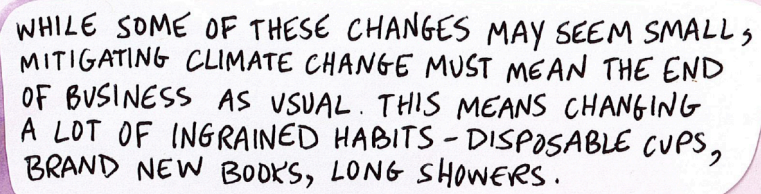 WHILE SOME OF THESE CHANGES MAY SEEM SMALL,
MITIGATING CLIMATE CHANGE MUST MEAN THE END
OF BUSINESS AS USUAL. THIS MEANS CHANGING
A LOT OF INGRAINED HABITS - DISPOSABLE CUPS,
BRAND NEW BOOKS, LONG SHOWERS.